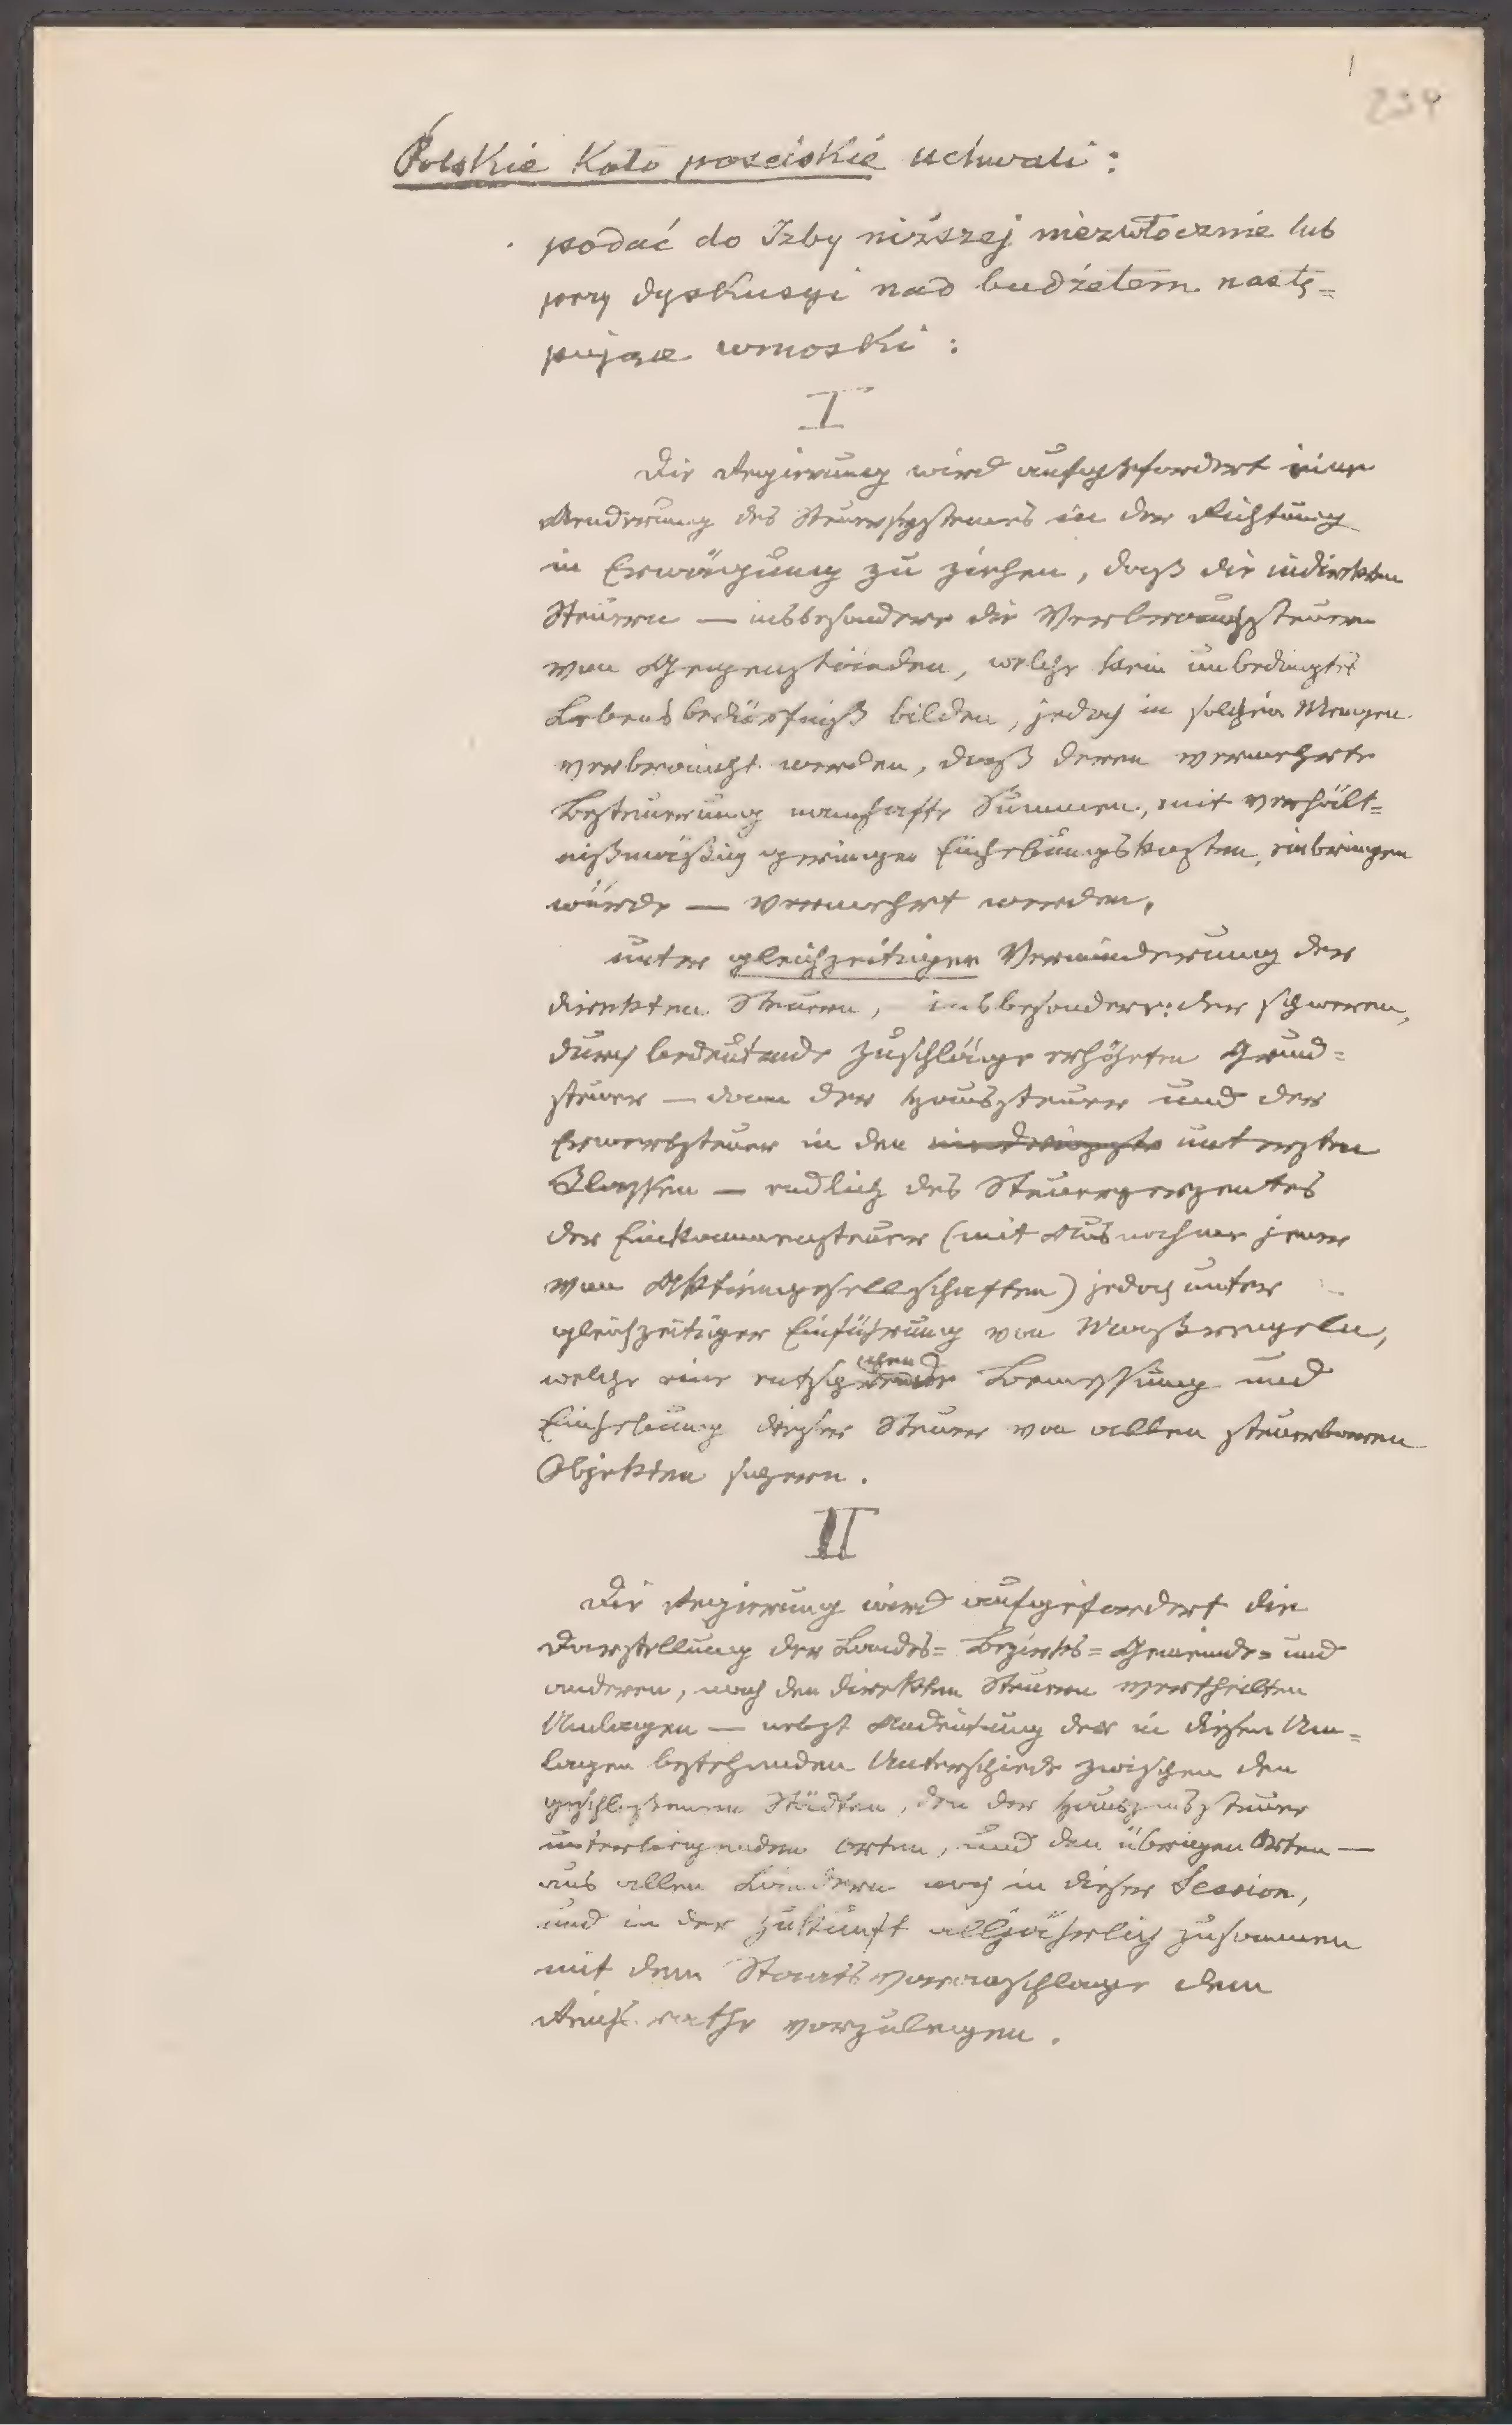 1
234
Polskie Koło poselskie uchwali:
podać do Izby niższej niezwłocznie lub
przy dyskusyi nad budżetem nastę=
pujące wnioski:
I
Die Regierung wird aufgefordert eine
Aenderung des Steuersystemes in der Richtung
in Erwägung zu ziehen, daß die indirekten
Steuern — insbesondere die Verbrauchssteuern
von Gegenständen, welche kein unbedingtes
Lebensbedürfniß bilden, jedoch in solchen Mengen
verbraucht werden, daß deren vermehrte
Besteuerung namhafte Summen, mit verhält=
nißmäßig geringen Einhebungskosten, einbringen
würde — vermehrt werden,
unter gleichzeitiger Verminderung der
direkten Steuern, insbesondere: der schweren,
durch bedeutende Zuschläge erhöheten Grund=
steuer — dann der Haussteuer und der
Erwerbsteuer in den untersten
Classen — endlich des Steuerperzentes
der Einkommensteuer (mit Ausnahme jener
von Aktiengesellschaften) jedoch unter
gleichzeitiger Einführung von Maaßregeln,
welche eine Bemessung und
Einhebung dieser Steuer von allen steuerbaren
Objekten sichern.
II
Die Regierung wird aufgefordert die
Darstellung der Landes= Bezirks= Gemeinde= und
anderen, nach den direkten Steuern vertheilten
Umlagen — nebst Andeutung der in diesen Um=
lagen bestehenden Unterschiede zwischen den
geschlossenen Städten, den der Hauszinssteuer
unterliegenden Orten, und den übrigen Orten —
aus allen Ländern noch in dieser Session,
und in der Zukunft alljährlich zusammen
mit dem Staatsvoranschlage dem
Reichsrathe vorzulegen.